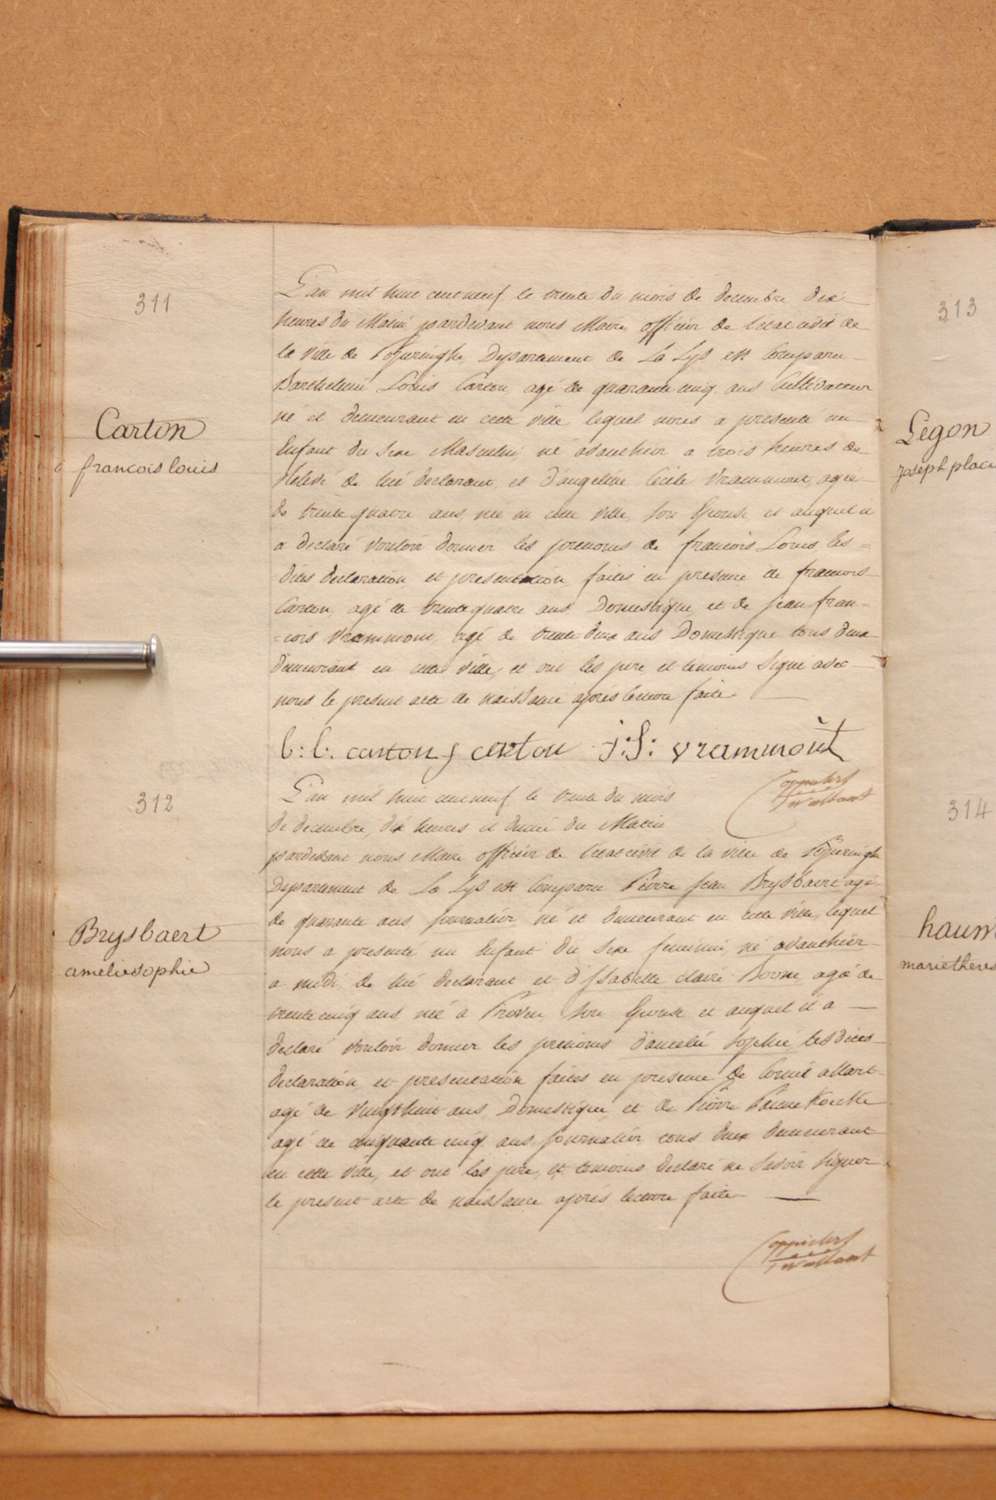 311
Carton
francois louis
L'an mil huit cent neuf le trente du mois de decembre dix
heures du Matin pardevant nous Maire officier de l'etat civil de
la ville de Poperinghe, Departement de La Lys est Comparu
Barthelemi Louis Carton, agé de quarante cinq ans Cultivateur
né et demeurant en cette ville lequel nous a presenté un
Enfant du Sexe Masculin né avanthier a trois heures de
Relevé de lui declarant et d'angeline Cecile Vrammout, agée
de trente quatre ans, née en cette ville, son Epouse et auquel il
a declaré vouloir donner les prenoms de francois Louis les
dites declaration et presentation faites en presence de francois
Carton, agé de trente quatre ans Domestique, et de jean fran=
=cois Vrammout, agé de trente deux ans Domestique tous deux
demeurant en cette ville, et ont les pere et temoins Signé avec
nous le present acte de naissance apres lecture faite
b: l: carton f carton j: f: vrammout
312
Brysbaert
amelie sophie
L'an mil huit cent neuf le trente du mois
de decembre, dix heures et demie du Matin
pardevant nous Maire officier de l'etat civil de la ville de Poperinghe
Departement de La Lys est Comparu Pierre Jean Brysbaert agé
de quarante ans journalier né et demeurant en cette ville, lequel
nous a presenté un Enfant du Sexe feminin, né avanthier
a midi, de lui declarant et d'Isabelle Claire Boone, agée de
trente cinq ans née a Proven son Epouse et auquel il a
declaré vouloir donner les prenoms d'amelie sophie, les dites
declaration et presentation faites en presence de Corneil allaert
agé de vingt huit ans, Domestique et de Pierre
agé de cinquante cinq ans journalier tous deux demeurant
en cette ville, et ont les pere, et temoins declaré ne Savoir Signer
le present acte de naissance aprés lecture faite
313
Legon
joseph placi
314
haum
marie theres